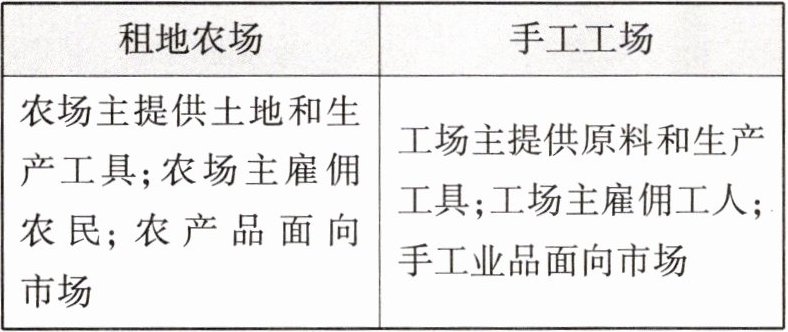 租地农场
手工工场
农场主提供土地和生
产工具;农场主雇佣
农民;农产品面向
市场
工场主提供原料和生产
工具;工场主雇佣工人;
手工业品面向市场